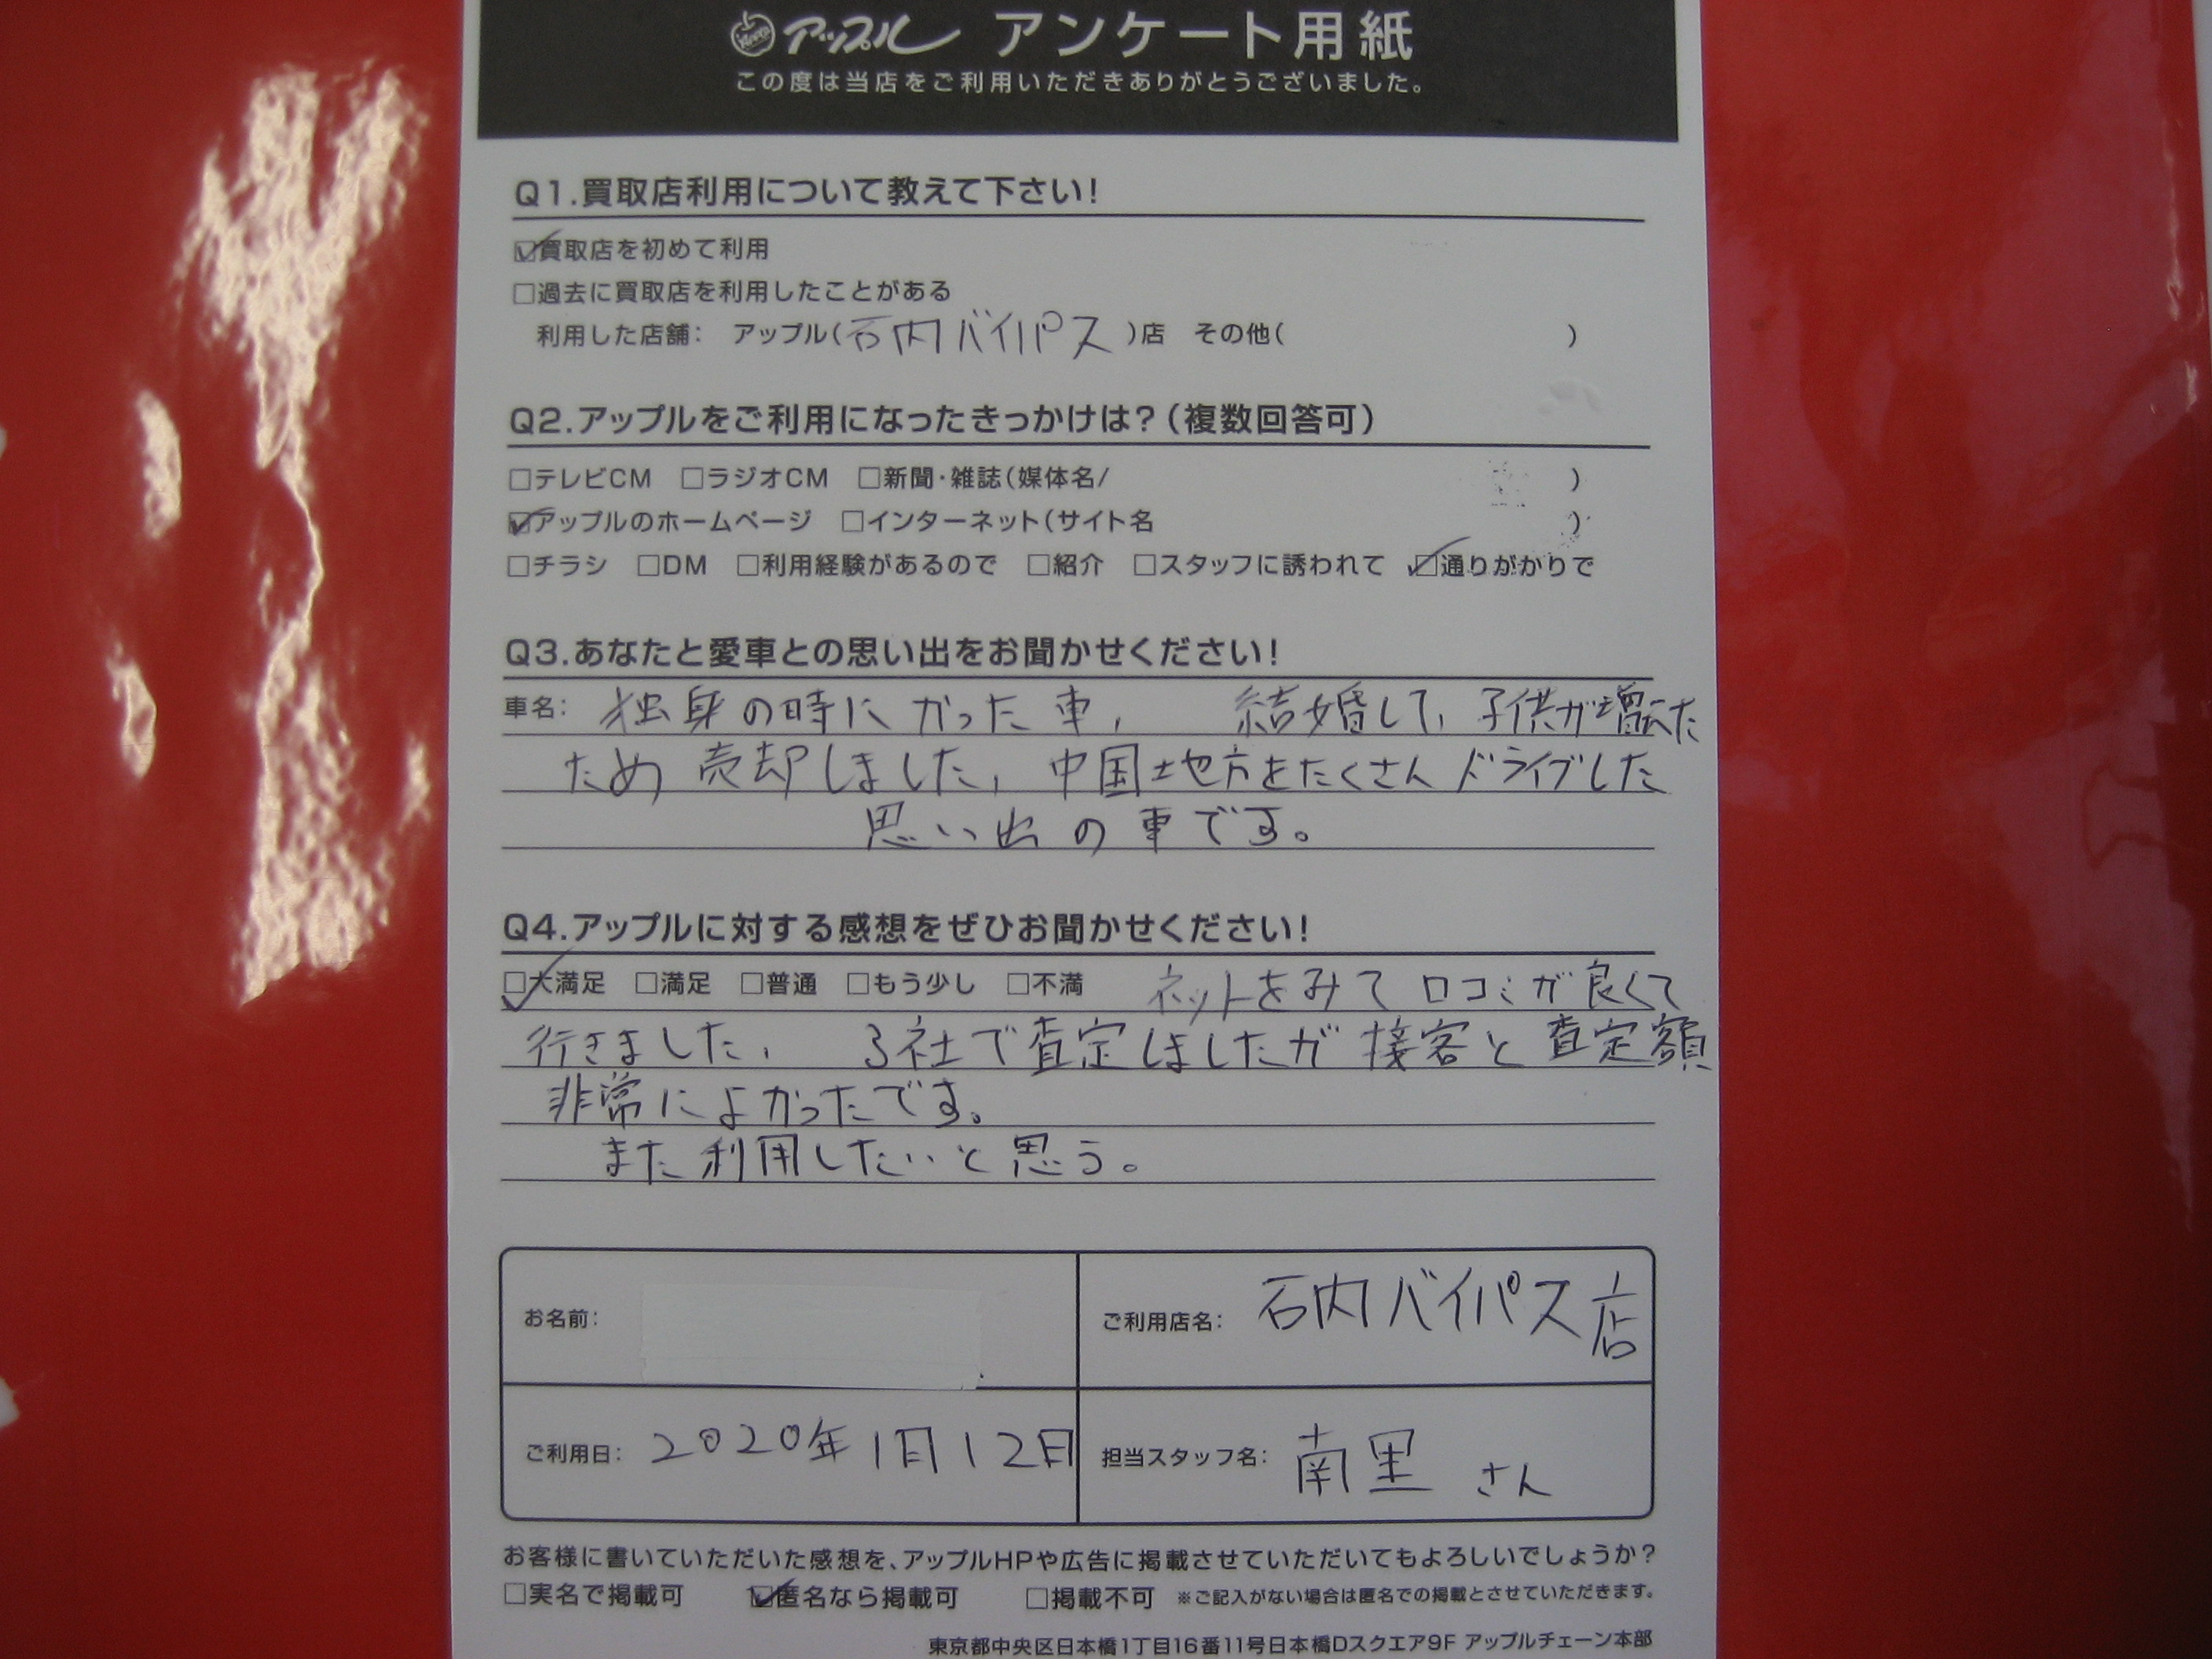 アップル アンケート用紙
この度は当店をご利用いただきありがとうございました。
Q1.買取店利用について教えて下さい!
☑買取店を初めて利用
□過去に買取店を利用したことがある
利用した店舗: アップル(石内バイパス)店 その他( )
Q2.アップルをご利用になったきっかけは?(複数回答可)
□テレビCM □ラジオCM □新聞・雑誌(媒体名/ )
☑アップルのホームページ □インターネット(サイト名 )
□チラシ □DM □利用経験があるので □紹介 □スタッフに誘われて ☑通りがかりで
Q3.あなたと愛車との思い出をお聞かせください!
車名: 独身の時にかった車、 結婚して、子供が増えた
ため売却しました、中国地方をたくさんドライブした
思い出の車です。
Q4.アップルに対する感想をぜひお聞かせください!
☑大満足 □満足 □普通 □もう少し □不満 ネットをみて口コミが良くて
行きました、 3社で査定しましたが接客と査定額
非常によかったです。
また利用したいと思う。
お名前: ご利用店名: 石内バイパス店
ご利用日: 2020年1月12日 担当スタッフ名: 南里 さん
お客様に書いていただいた感想を、アップルHPや広告に掲載させていただいてもよろしいでしょうか?
□実名で掲載可 ☑匿名なら掲載可 □掲載不可 ※ご記入がない場合は匿名での掲載とさせていただきます。
東京都中央区日本橋1丁目16番11号日本橋Dスクエア9F アップルチェーン本部